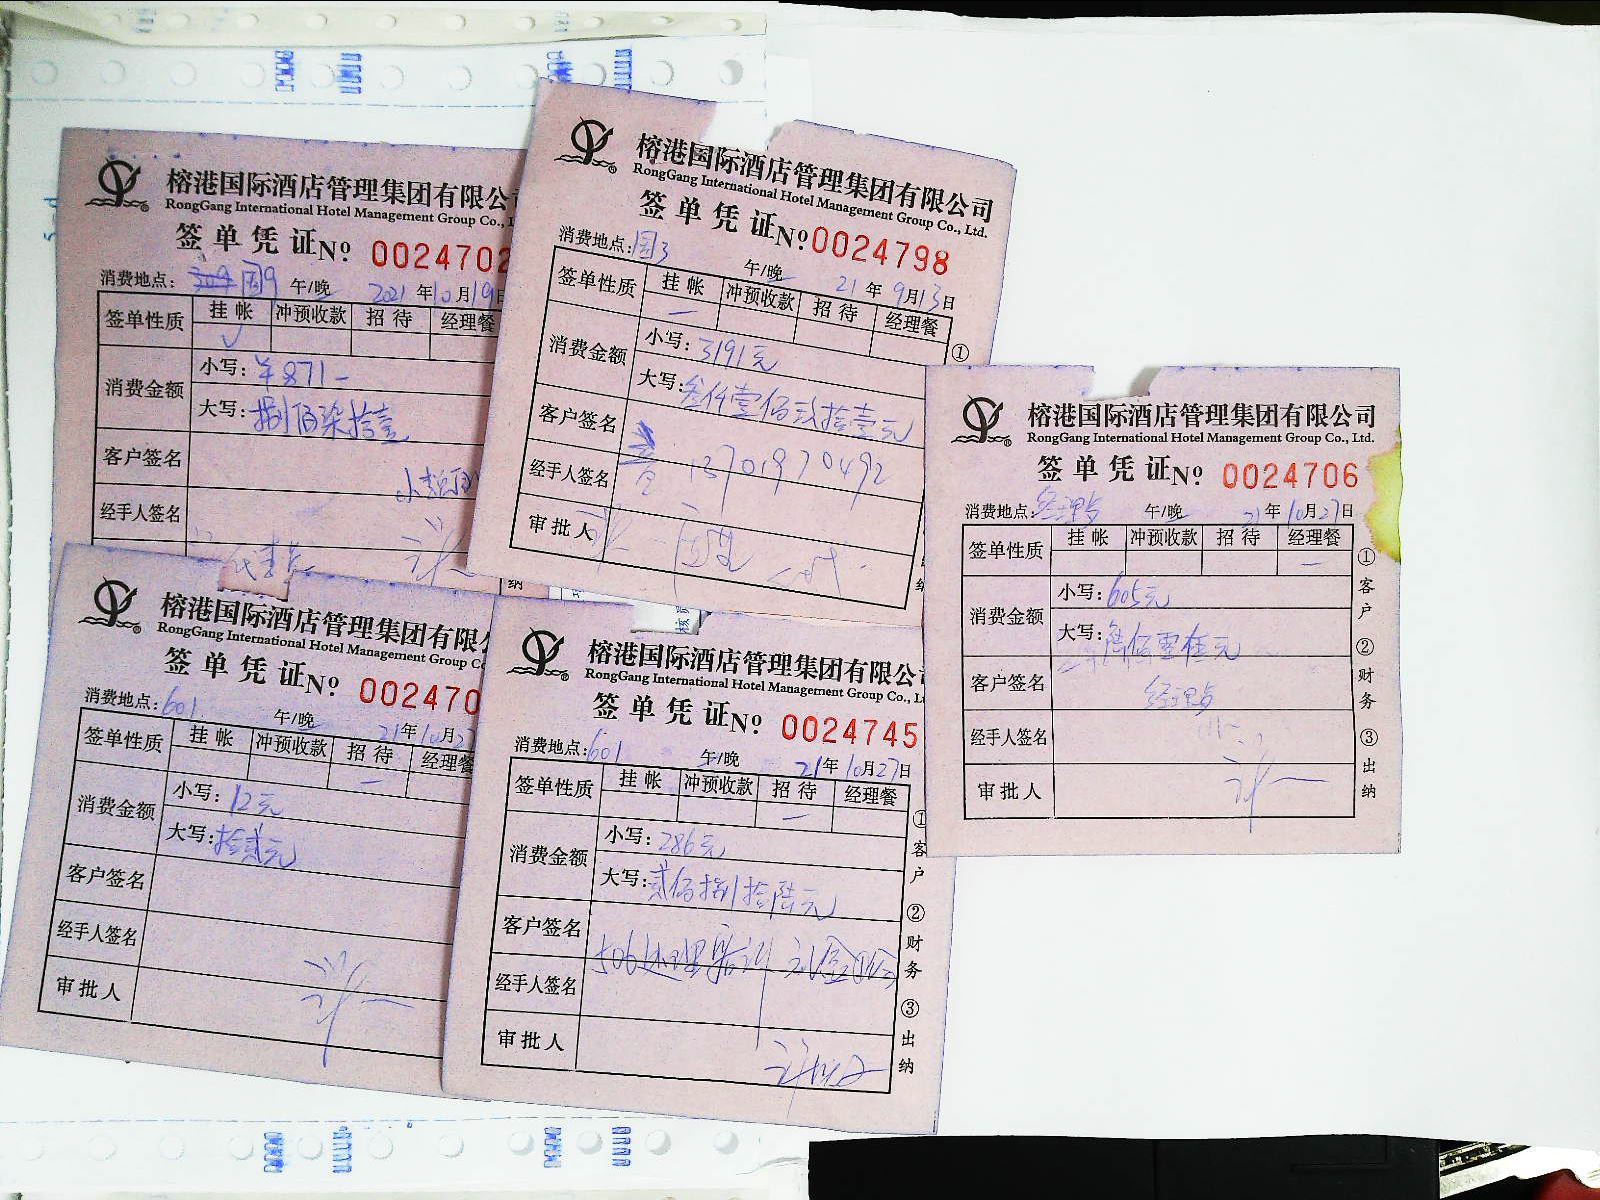 榕港国际酒店管理集团有限公司
RongGang International Hotel Management Group Co., L
签单凭证№ 0024702
消费地点: 国9 午/晚 2021年10月19日
签单性质 挂帐 冲预收款 招待 经理餐
消费金额 小写: ¥871-
大写: 捌佰柒拾壹
客户签名
经手人签名
榕港国际酒店管理集团有限公司
RongGang International Hotel Management Group Co., Ltd.
签单凭证№ 0024798
消费地点: 国3 午/晚 21年9月13日
签单性质 挂帐 冲预收款 招待 经理餐
①
消费金额 小写: 3191元
大写: 叁仟壹佰玖拾壹元
客户签名
13701970492
经手人签名
审批人
纳
榕港国际酒店管理集团有限公司
RongGang International Hotel Management Group Co., Ltd.
签单凭证№ 0024706
消费地点: 午/晚 21年10月27日
签单性质 挂帐 冲预收款 招待 经理餐
消费金额 小写: 605元
大写: 陆佰零伍元
客户签名
经手人签名
审批人
①客户 ②财务 ③出纳
榕港国际酒店管理集团有限
RongGang International Hotel Management Group Co
签单凭证№ 002470
消费地点: 601 午/晚 21年10月2
签单性质 挂帐 冲预收款 招待 经理餐
消费金额 小写: 12元
大写: 拾贰元
客户签名
经手人签名
审批人
核
榕港国际酒店管理集团有限公
RongGang International Hotel Management Group Co., L
签单凭证№ 0024745
消费地点: 601 午/晚 21年10月27日
签单性质 挂帐 冲预收款 招待 经理餐
消费金额 小写: 286元
大写: 贰佰捌拾陆元
客户签名
经手人签名
审批人
①客户 ②财务 ③出纳